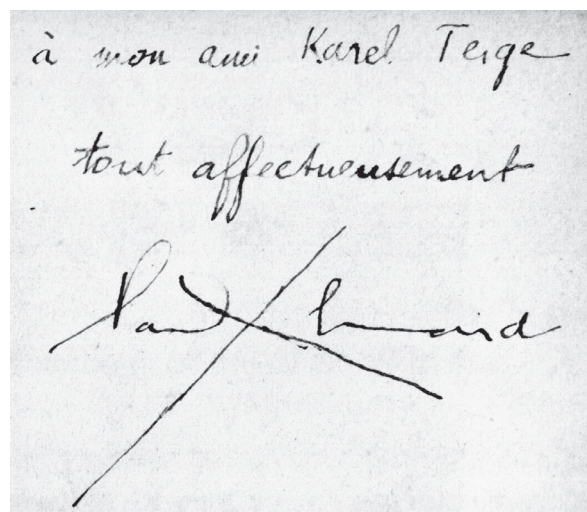 à mon ami Karel Teige
tout affectueusement
Paul Eluard